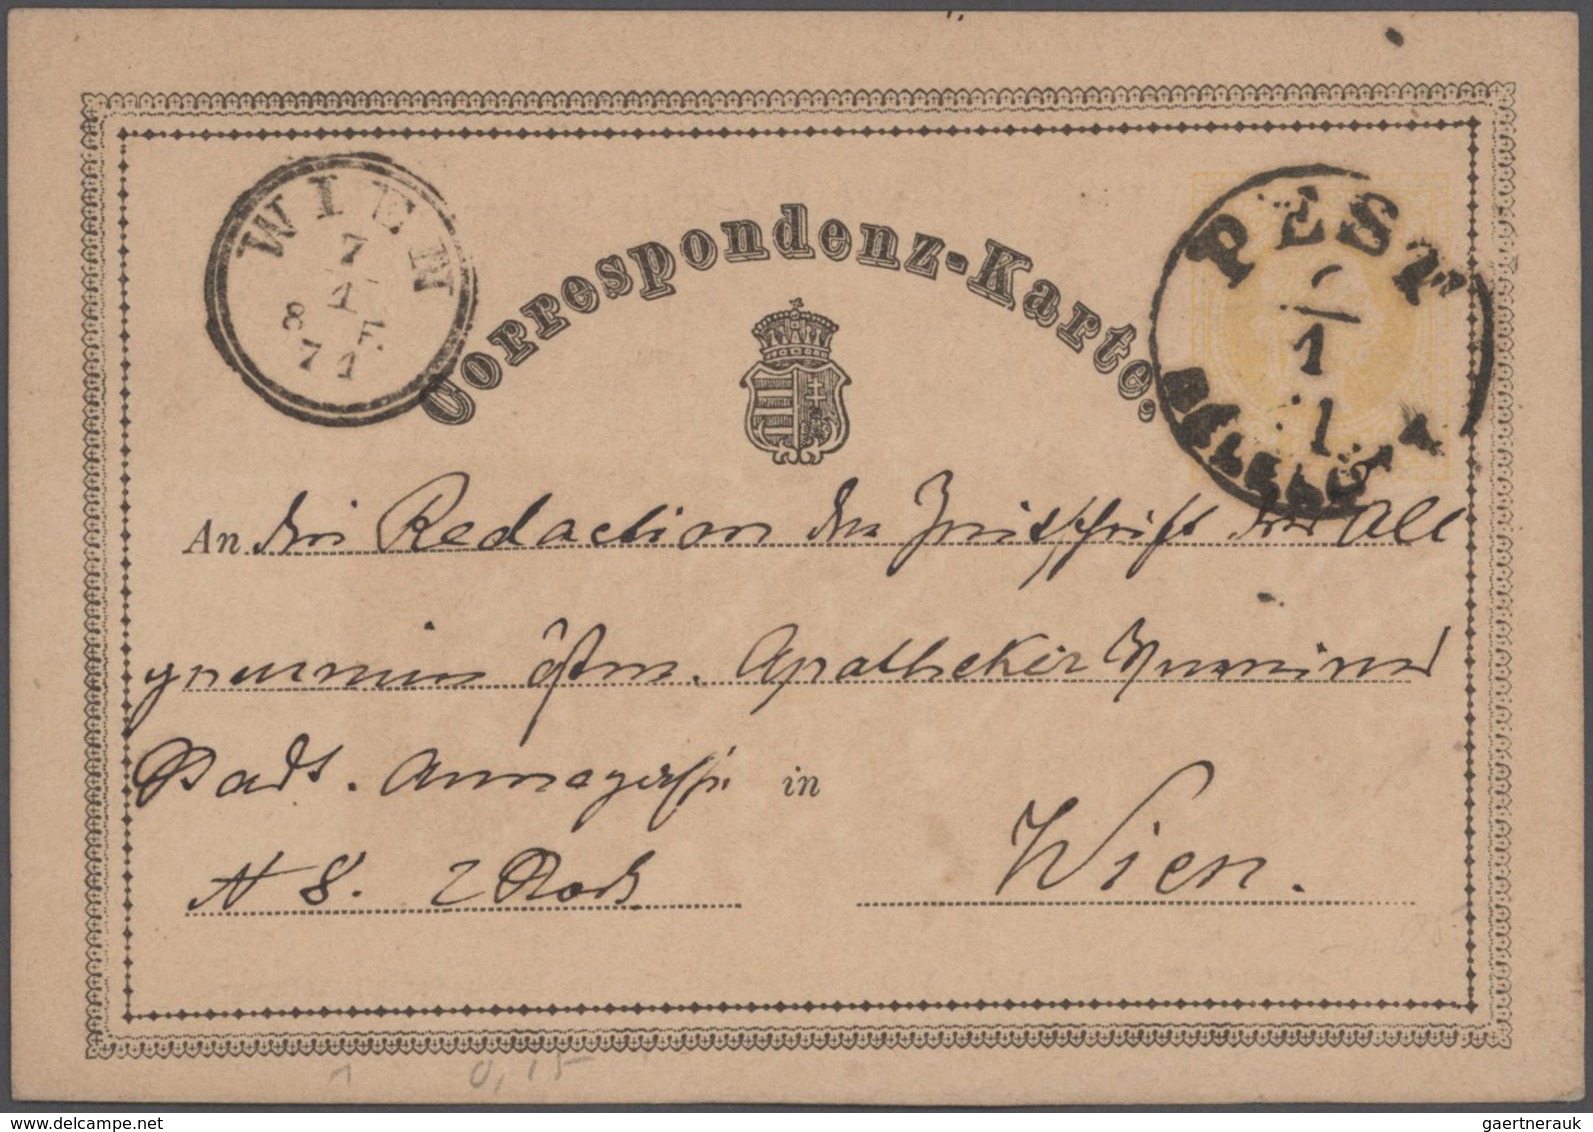 WIEN
7
1
8 F.
71
Correspondenz-Karte.
PEST
1
An die Redaction der Zeitschrift des All
gemeinen österr. Apotheker Vereines
Stadt. Annagasse in
N 8. 2 Stock Wien.
0,15
gaertnerauk